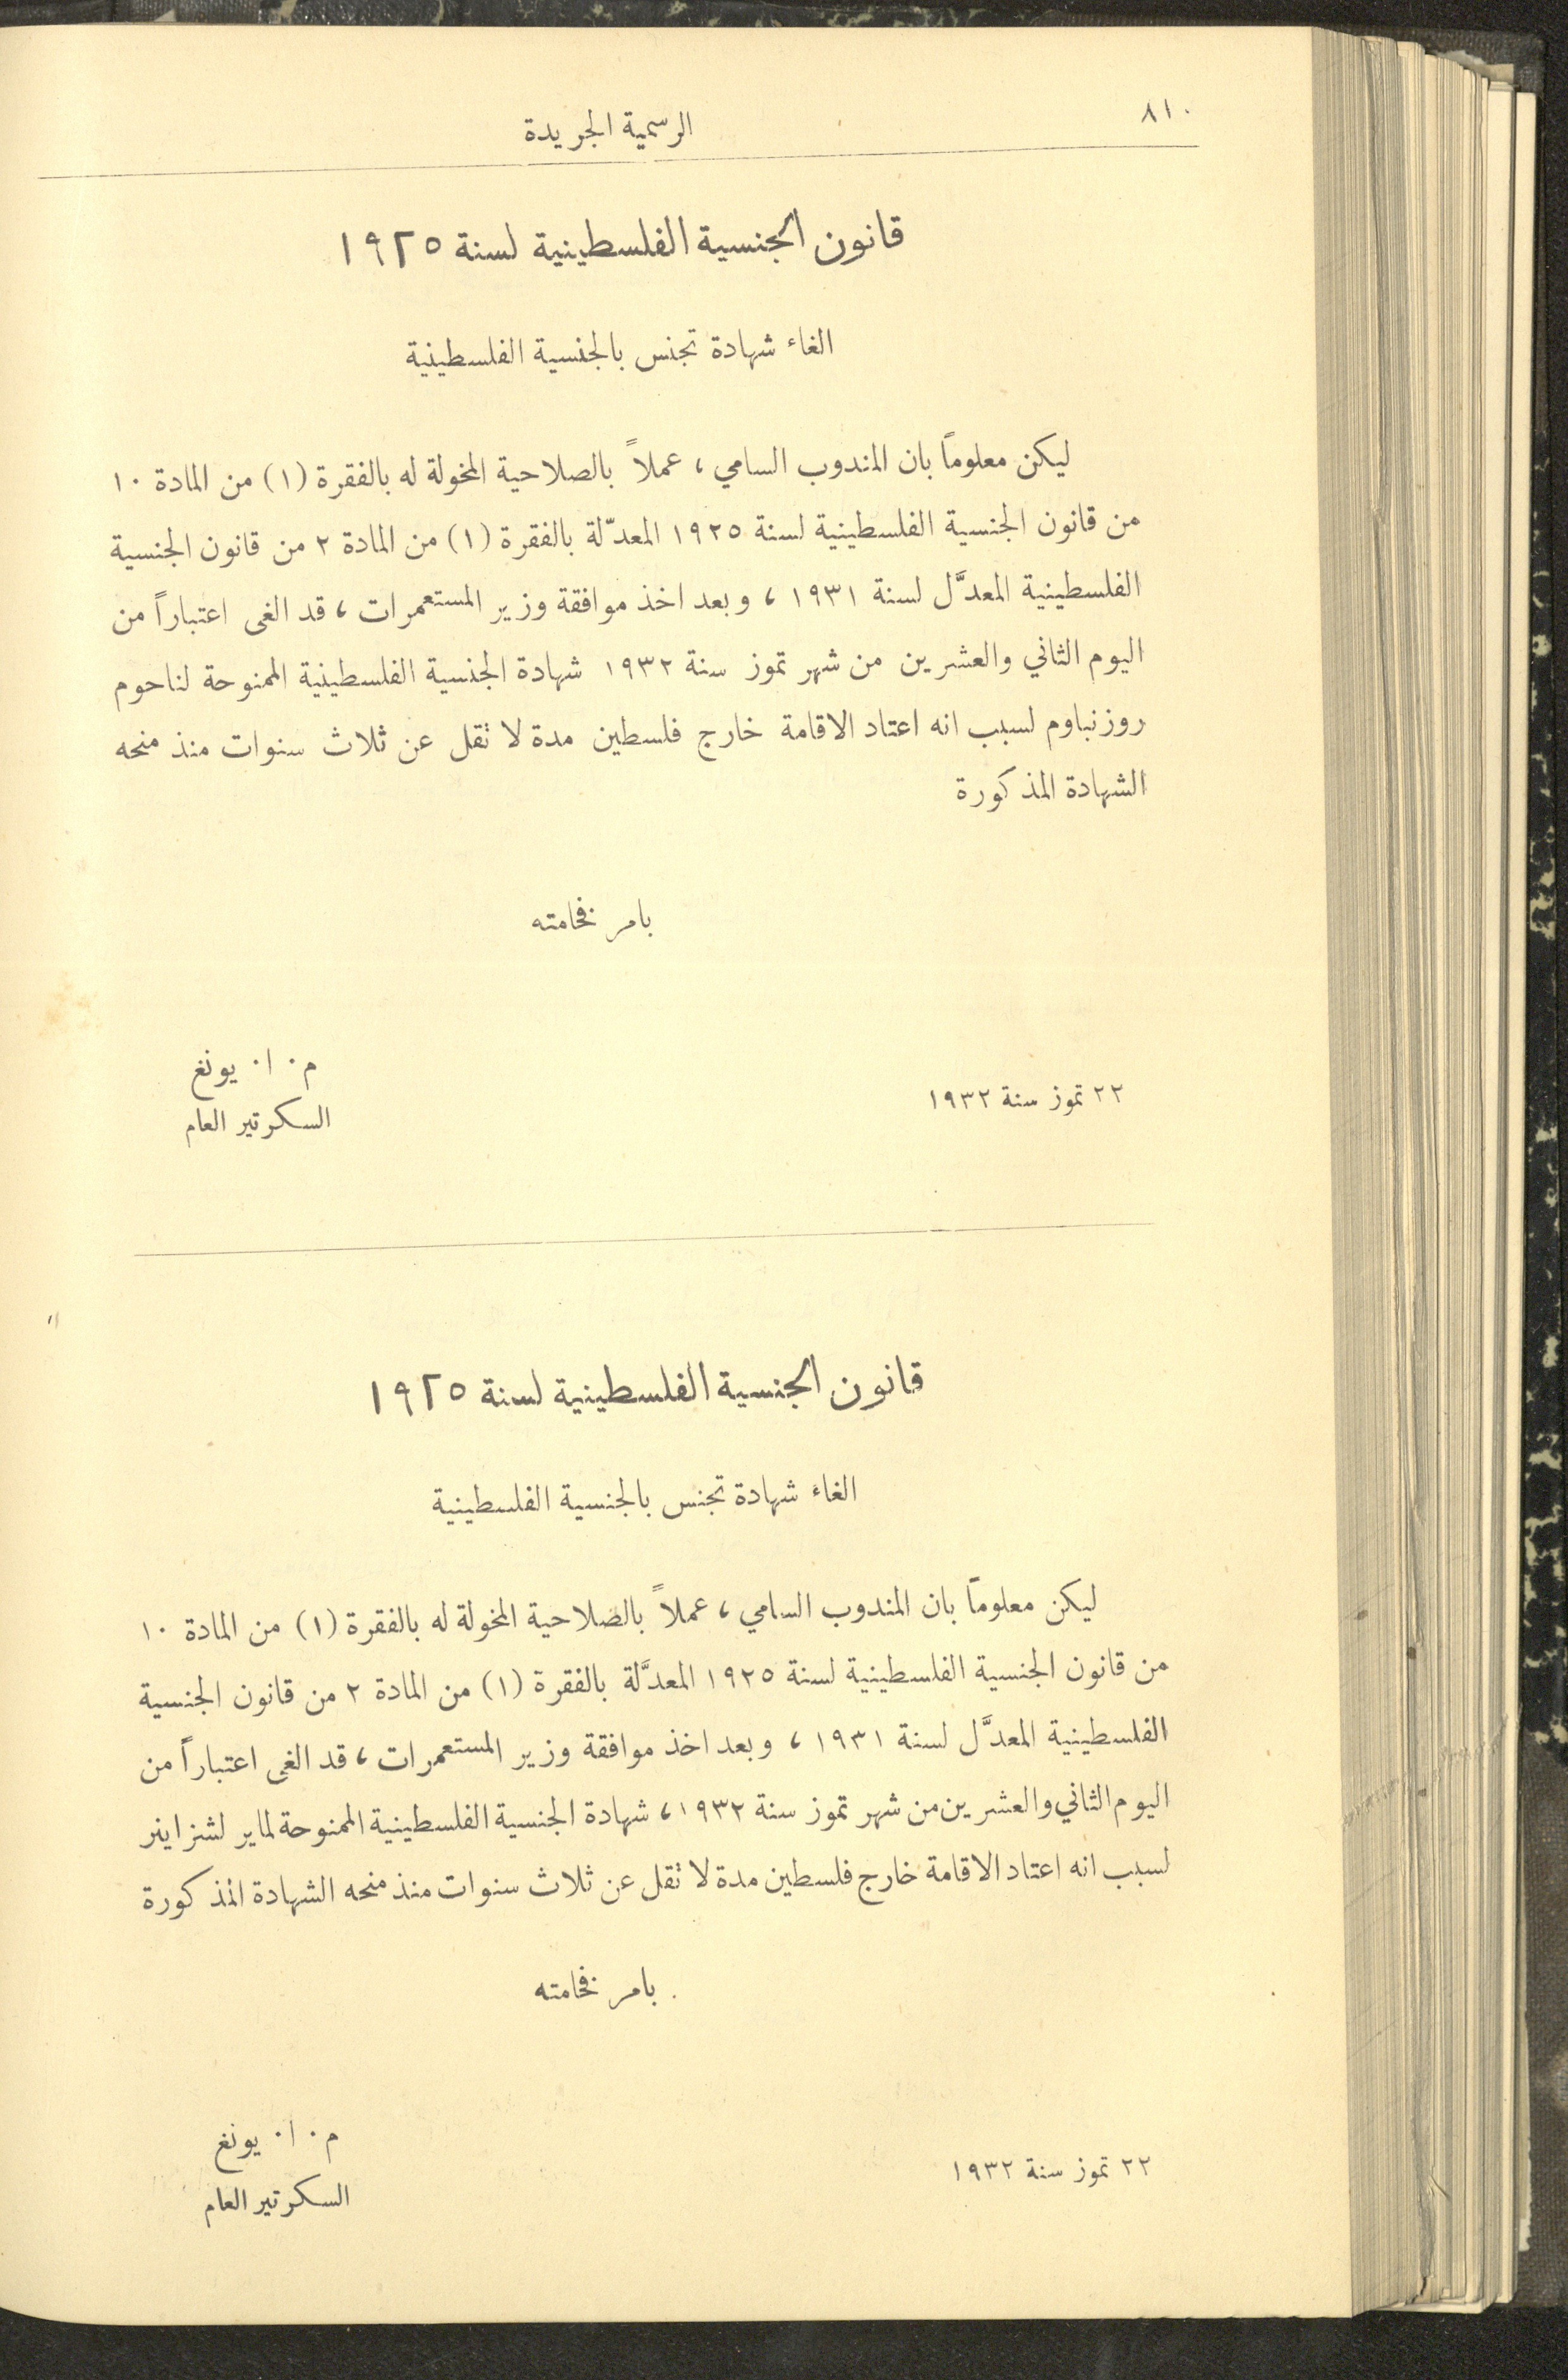 ٨١٠
الرسمية الجريدة
قانون الجنسية الفلسطينية لسنة ١٩٢٥
الغاء شهادة تجنس بالجنسية الفلسطينية
ليكن معلوماً بان المندوب السامي، عملاً بالصلاحية المخولة له بالفقرة (١) من المادة ١٠
من قانون الجنسية الفلسطينية لسنة ١٩٢٥ المعدّلة بالفقرة (١) من المادة ٢ من قانون الجنسية
الفلسطينية المعدَّل لسنة ١٩٣١، وبعد اخذ موافقة وزير المستعمرات، قد الغى اعتباراً من
اليوم الثاني والعشرين من شهر تموز سنة ١٩٣٢ شهادة الجنسية الفلسطينية الممنوحة لناحوم
روزنباوم لسبب انه اعتاد الاقامة خارج فلسطين مدة لا تقل عن ثلاث سنوات منذ منحه
الشهادة المذكورة
بامر فخامته
٢٢ تموز سنة ١٩٣٢
م. ا. يونغ
السكرتير العام
قانون الجنسية الفلسطينية لسنة ١٩٢٥
الغاء شهادة تجنس بالجنسية الفلسطينية
ليكن معلوماً بان المندوب السامي، عملاً بالصلاحية المخولة له بالفقرة (١) من المادة ١٠
من قانون الجنسية الفلسطينية لسنة ١٩٢٥ المعدَّلة بالفقرة (١) من المادة ٢ من قانون الجنسية
الفلسطينية المعدَّل لسنة ١٩٣١، وبعد اخذ موافقة وزير المستعمرات، قد الغى اعتباراً من
اليوم الثاني والعشرين من شهر تموز سنة ١٩٣٢، شهادة الجنسية الفلسطينية الممنوحة لماير لشنزاينر
لسبب انه اعتاد الاقامة خارج فلسطين مدة لا تقل عن ثلاث سنوات منذ منحه الشهادة المذكورة
بامر فخامته
٢٢ تموز سنة ١٩٣٢
م. ا. يونغ
السكرتير العام